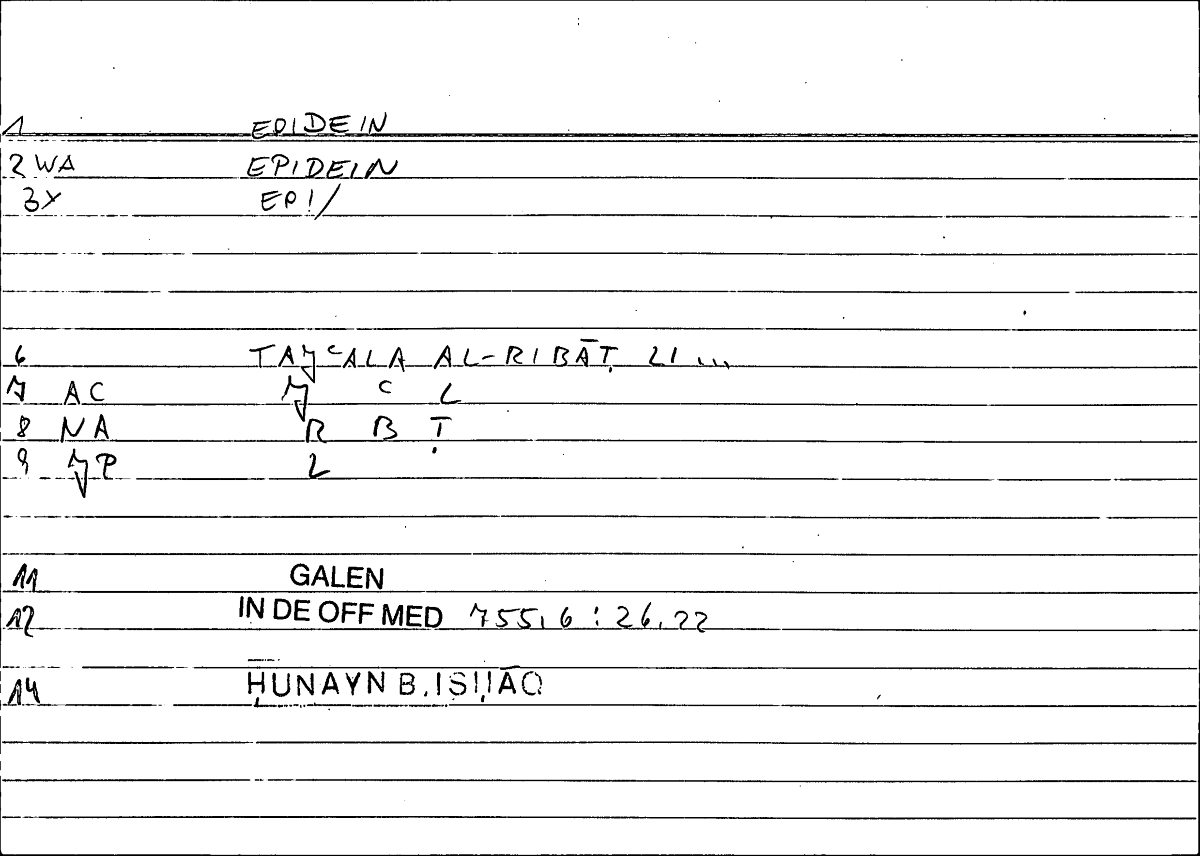 1 EPIDEIN
2 WA EPIDEIN
3X EPI/
6 TAJʿALA AL-RIBĀṬ LI ...
7 AC J ʿ L
8 NA R B Ṭ
9 JP L
11 GALEN
12 IN DE OFF MED 755,6 : 26,22
14 ḤUNAYN B. ISḤĀQ